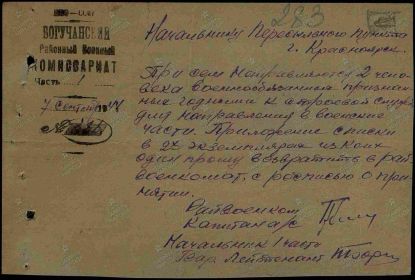 БОГУЧАНСКИЙ
Районный Военный
КОМИССАРИАТ
Часть 1
7 Сентяб 194
№
283
Начальнику Пересыльного пункта
г. Красноярск.
При сем направляются 2 чело-
века военнообязанных признан-
ные годными к строевой служб
для направления в воинские
части. Приложение списки
в 2х экземплярах из коих
один прошу возвратить в рай
военкомат, с росписью о при-
нятии.
Райвоенком
Капитан а/с
Начальник 1 части
Лейтенант